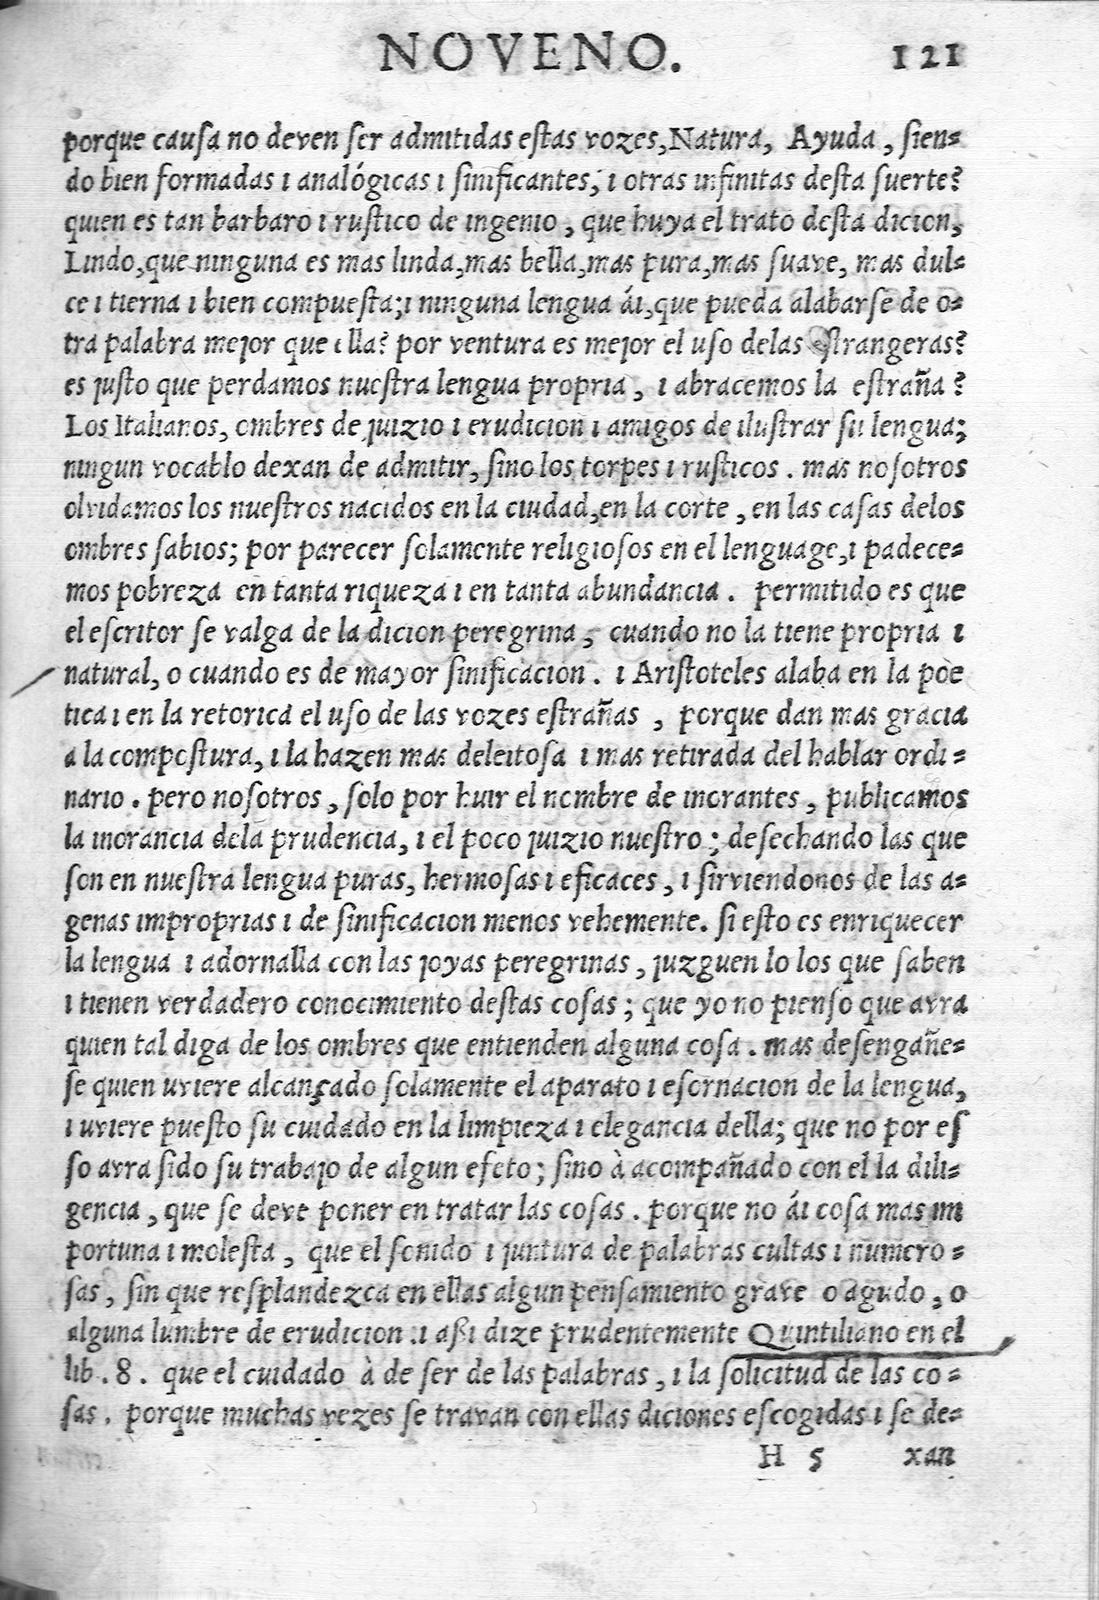 NOVENO. 121
porque causa no deven ser admitidas estas vozes, Natura, Ayuda, sien-
do bien formadas i analógicas i sinificantes, i otras infinitas desta suerte?
quien es tan barbaro i rustico de ingenio, que huya el trato desta dicion,
Lindo, que ninguna es mas linda, mas bella, mas pura, mas suave, mas dul-
ce i tierna i bien compuesta; i ninguna lengua ái, que pueda alabarse de o-
tra palabra mejor que ella? por ventura es mejor el uso delas estrangeras?
es justo que perdamos nuestra lengua propria, i abracemos la estraña?
Los Italianos, ombres de juizio i erudicion i amigos de ilustrar su lengua;
ningun vocablo dexan de admitir, sino los torpes i rusticos. mas nosotros
olvidamos los nuestros nacidos en la ciudad, en la corte, en las casas delos
ombres sabios; por parecer solamente religiosos en el lenguage, i padece-
mos pobreza en tanta riqueza i en tanta abundancia. permitido es que
el escritor se valga de la dicion peregrina, cuando no la tiene propria i
natural, o cuando es de mayor sinificacion. i Aristoteles alaba en la poe
tica i en la retorica el uso de las vozes estrañas, porque dan mas gracia
a la compostura, i la hazen mas deleitosa i mas retirada del hablar ordi-
nario. pero nosotros, solo por huir el nombre de inorantes, publicamos
la inorancia dela prudencia, i el poco juizio nuestro; desechando las que
son en nuestra lengua puras, hermosas i eficaces, i sirviendonos de las a-
genas improprias i de sinificacion menos vehemente. si esto es enriquecer
la lengua i adornalla con las joyas peregrinas, juzguen lo los que saben
i tienen verdadero conocimiento destas cosas; que yo no pienso que avra
quien tal diga de los ombres que entienden alguna cosa. mas desengañe-
se quien uviere alcançado solamente el aparato i esornacion de la lengua,
i uviere puesto su cuidado en la limpieza i elegancia della; que no por es
so avra sido su trabajo de algun efeto; sino à acompañado con el la dili-
gencia, que se deve poner en tratar las cosas. porque no ái cosa mas im
portuna i molesta, que el sonido i juntura de palabras cultas i numero-
sas, sin que resplandezca en ellas algun pensamiento grave o agudo, o
alguna lumbre de erudicion. i assi dize prudentemente Quintiliano en el
lib. 8. que el cuidado à de ser de las palabras, i la solicitud de las co-
sas. porque muchas vezes se travan con ellas diciones escogidas i se de-
H 5 xan